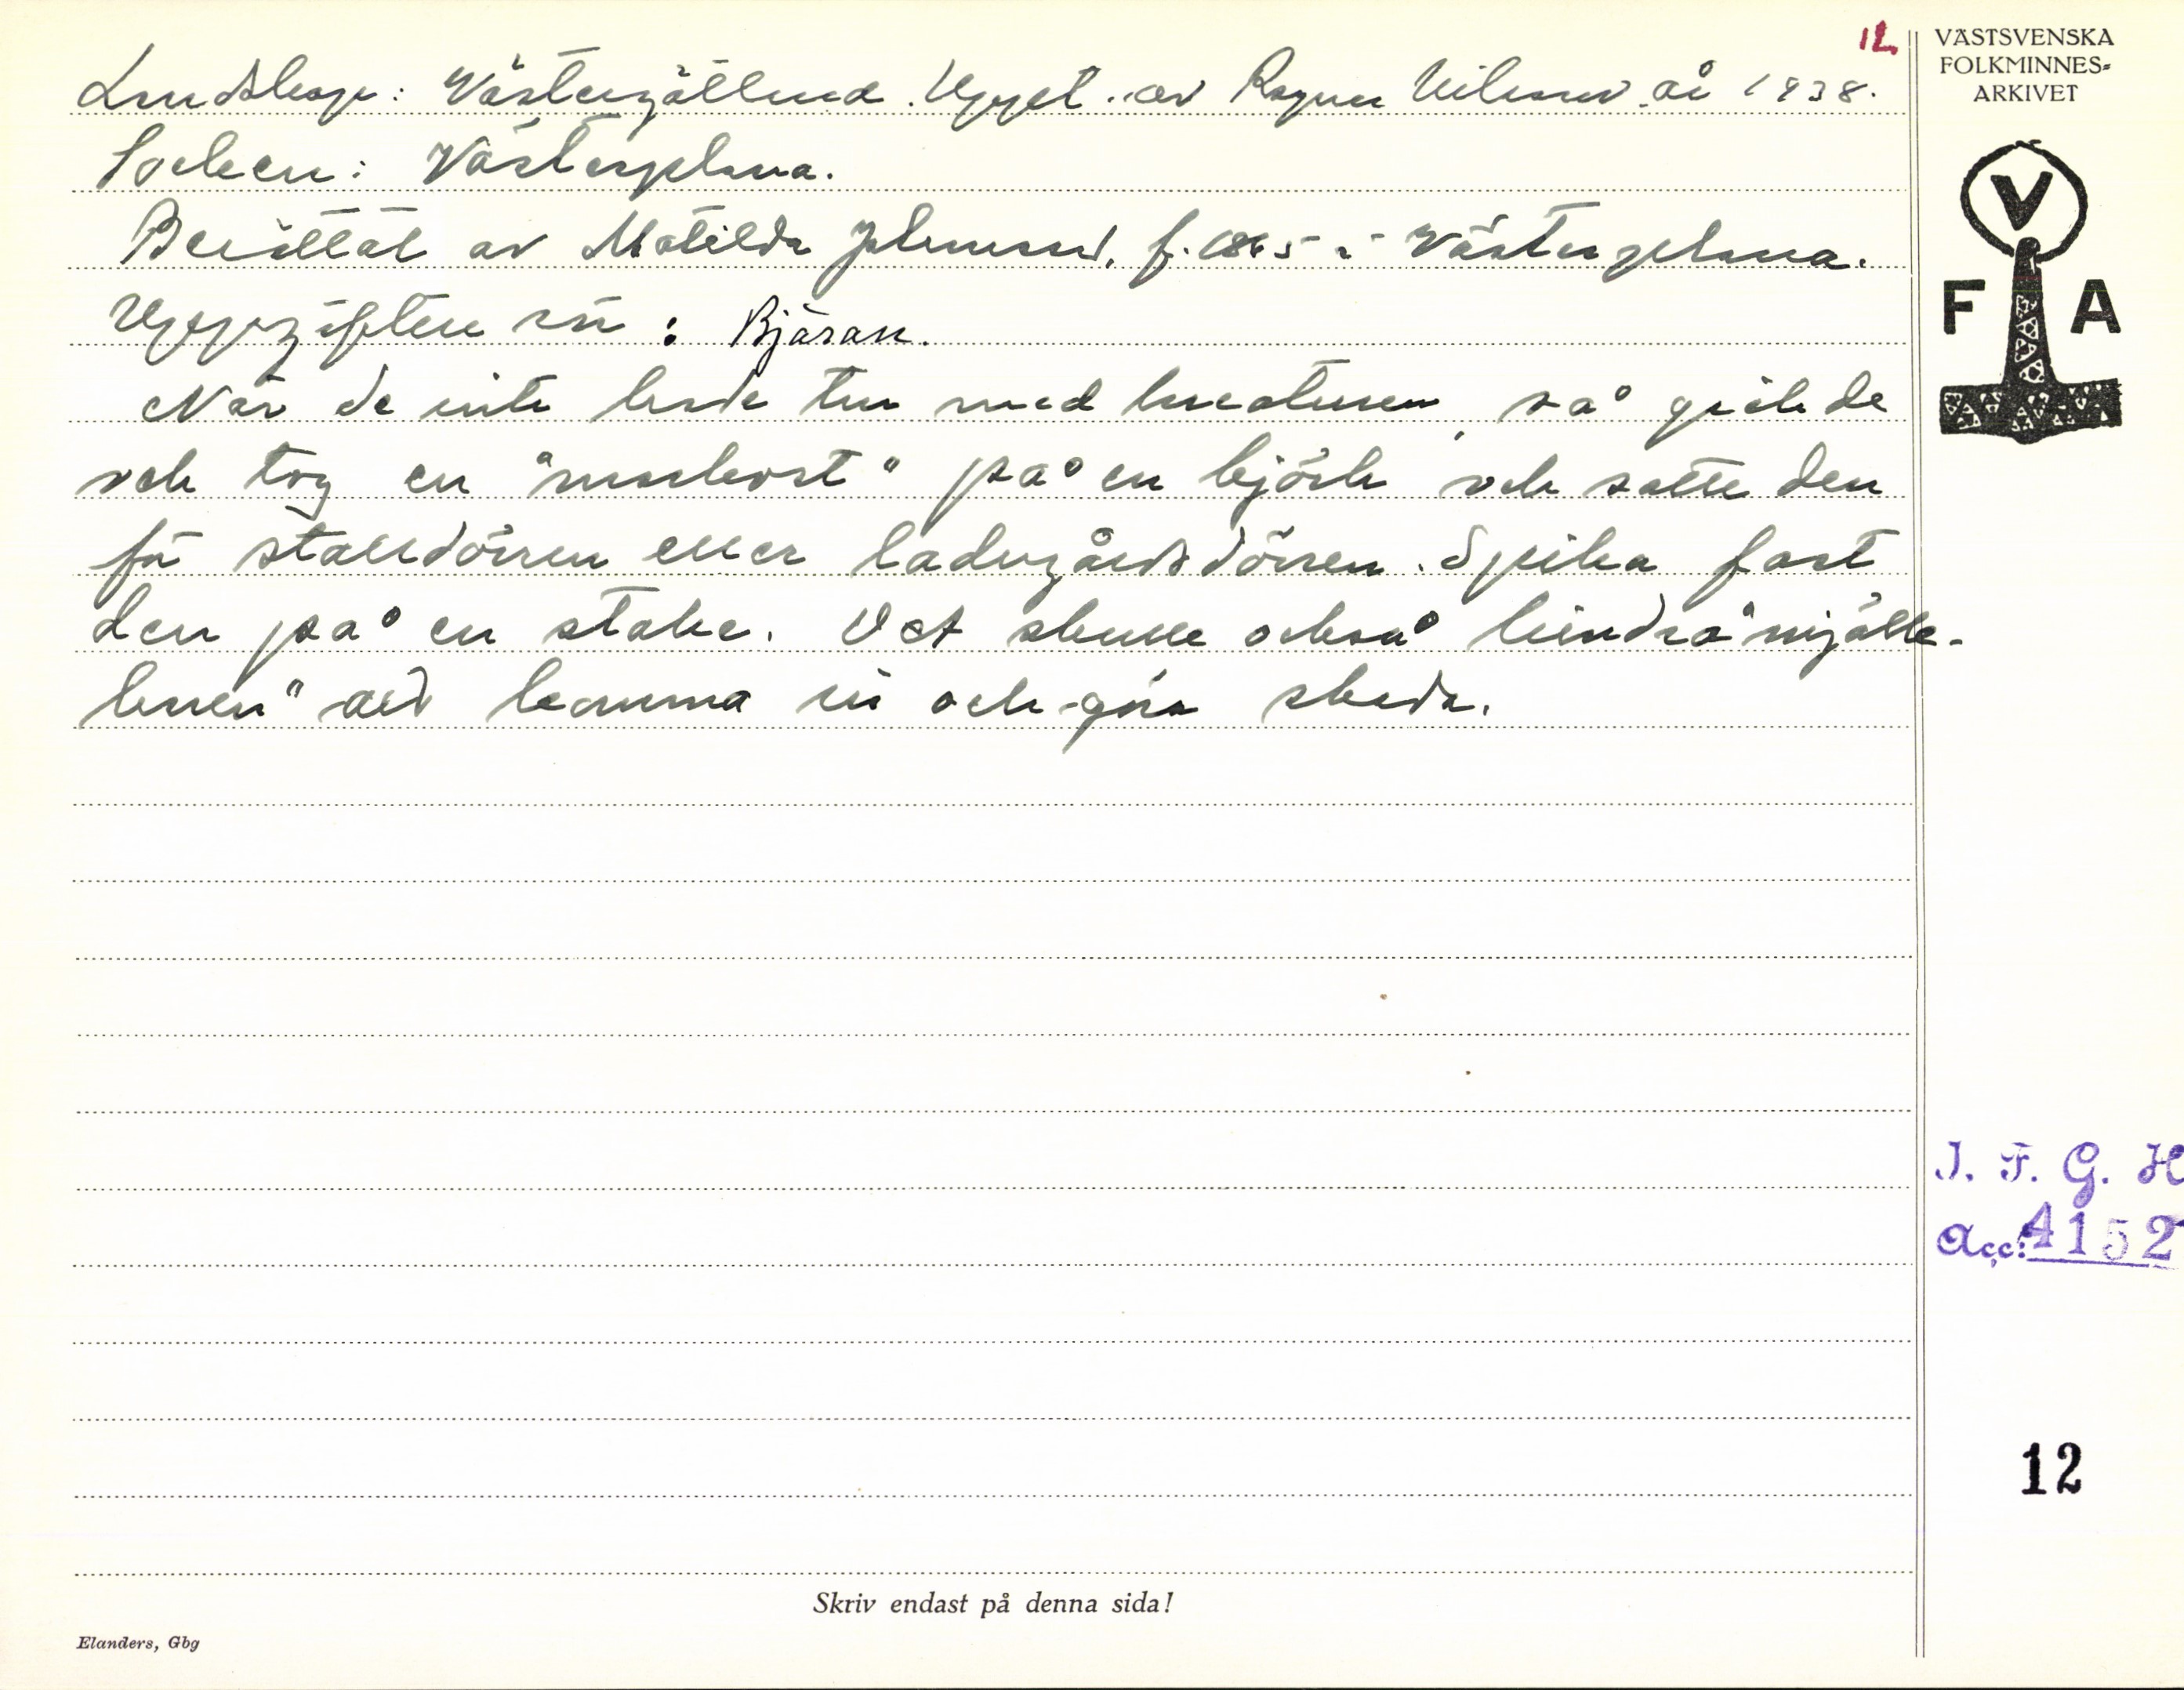 12.
Landskap: Västergötland. Uppt. av Ragnar Nilsson år 1938.
Socken: Västerplana.
Berättat av Matilda Johansson, f. 1865 i Västerplana.
Uppgiften rör: Bjäran.
När de inte hade tur med kreaturen, så gick de
och tog en "markvast" på en björk och satte den
för stalldörren eller ladugårdsdörren. Spika fast
den på en stake. Det skulle också hindra "mjölk-
haren" att komma in och göra skada.
VÄSTSVENSKA
FOLKMINNES-
ARKIVET
V
F A
I. F. G. H
Acc: 4152
12
Skriv endast på denna sida!
Elanders, Gbg